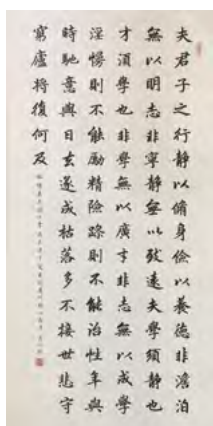 夫君子之行靜以脩身儉以養德非澹泊
無以明志非寧靜無以致遠夫學須靜也
才須學也非學無以廣才非志無以成學
淫慢則不能勵精險躁則不能治性年與
時馳意與日去遂成枯落多不接世悲守
窮廬將復何及